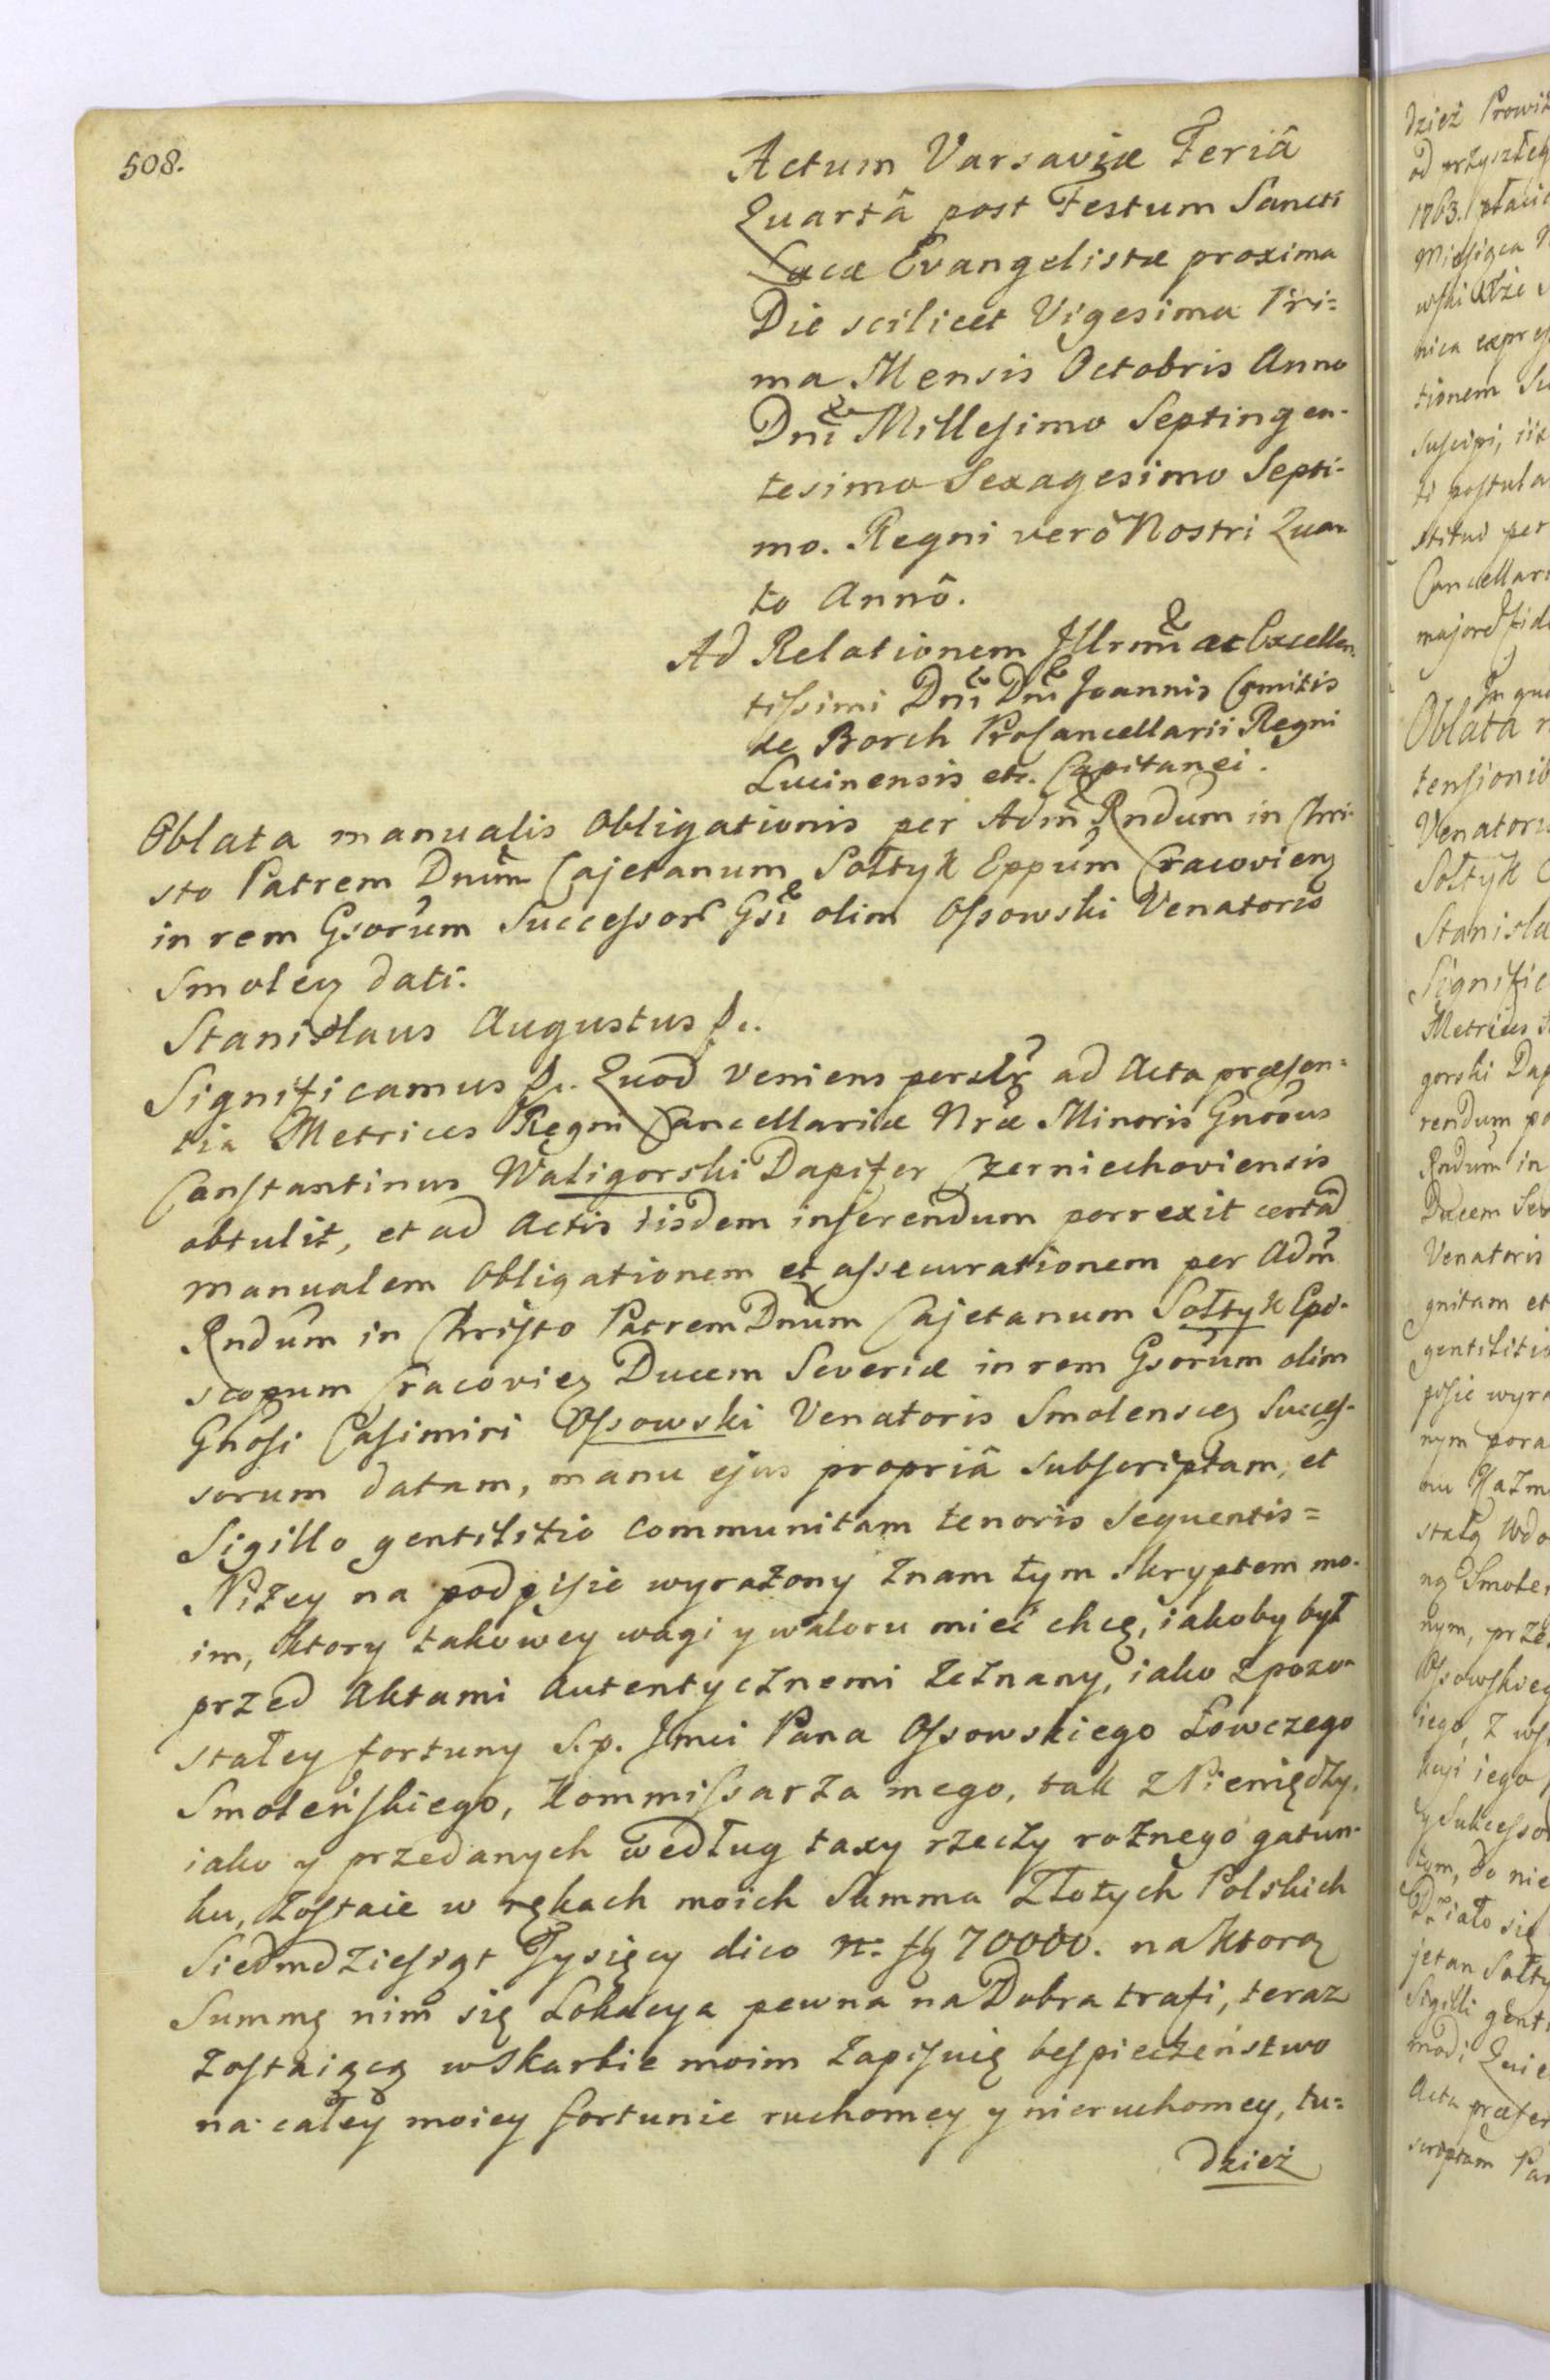 508.
Actum Varsaviæ Feriâ
Quartâ post Festum Sancti
Lucæ Evangelistæ proxima
Die scilicet Vigesima Pri=
ma Mensis Octobris Anno
Dni Millesimo Septingen-
tesimo Sexagesimo Septi-
mo. Regni verò Nostri Quar
to Annô.
Ad Relationem Illrmi ac Excellen
tissimi Dni Dni Joannis Comitis
de Borch ProCancellarii Regni
Lucinensis etc. Capitanei.
Oblata manualis Obligationis per Adm Rndum in Chri-
sto Patrem Dnum Cajetanum Sołtyk Eppum Cracovien
in rem Gsorum Successor Gsi olim Ossowski Venatoris
Smolen dati.
Stanislaus Augustus &c.
Significamus &c. Quod veniens persltr ad Acta præsen=
tia Metrices Regni Cancellariæ Nræ Minoris Gnosus
Constantinus Waligorski Dapifer Czerniechoviensis
obtulit, et ad Actis iisdem inserendum porrexit certam
manualem Obligationem et assecurationem per Adm
Rndum in Christo Patrem Dnum Cajetanum Sołtyk Epi-
scopum Cracovien Ducem Severiæ in rem Gsorum olim
Gnosi Casimiri Ossowski Venatoris Smolenscen Succes-
sorum datam, manu ejus propriâ subscriptam, et
Sigillo gentilitio communitam tenoris sequentis=
Niżey na podpisie wyrażony znam tym skryptem mo-
im, ktory takowey wagi y waloru mieć chcę, iakoby był
przed Aktami Autentycznemi zeznany, iako z pozo-
stałey fortuny S.p. Jmci Pana Ossowskiego Łowczego
Smoleńskiego, Kommissarza mego, tak z Pieniędzy,
iako y przedanych według taxy rzeczy rożnego gatun-
ku, zostaie w rękach moich Summa Złotych Polskich
Siedmdziesiąt Tysięcy dico n: fl 70000. na ktorą
Summę nim się Lokacya pewna na Dobra trafi, teraz
zostaiącą w Skarbie moim zapisuię bespieczeństwo
na całey moiey fortunie ruchomey y nieruchomey, tu=
dzież